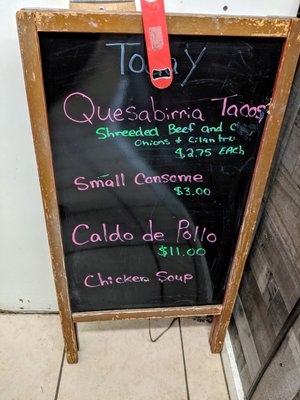 Today
Quesabirria Tacos
Shreeded Beef and
Onions + Cilantro
$2.75 Each
Small Consome
$3.00
Caldo de Pollo
$11.00
Chicken Soup